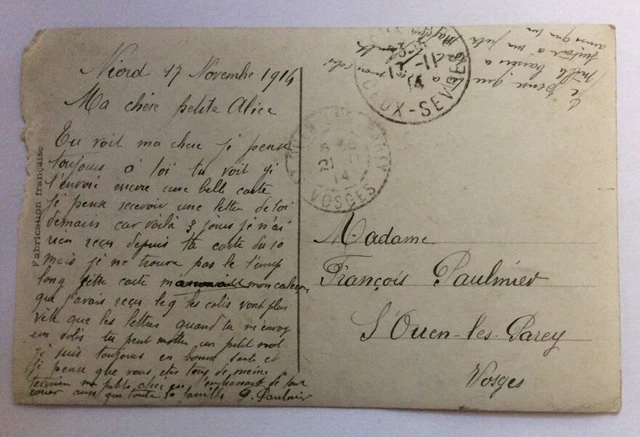 Niord 17 Novembre 1914
Ma chère petite Alice
Tu voit ma chere je pense
toujours a toi tu voit je
t'envoie encore une bell carte
je pense recevoir une lettre de toi
demain car voilà 3 jours je n'ai
rien reçu depuis ta carte du 10
mais je ne trouve pas le temp
long cette carte mon
que j'avais reçu le 9 les colis vont plus
vite que les lettres quand tu m'envoy
un colis tu peut mettre un petit mot
je suis toujours en bonne santé et
je pense que vous êtes tous de meme
termine ma petite chere en t'embrassant de tout
coeur ainsi que toute la famille
Fabrication française
Madame
François Paulmier
S'Ouen-les-Parey
Vosges
17-11
14
DEUX-SEVRES
14
VOSGES
je pense que
mille
ainsi que